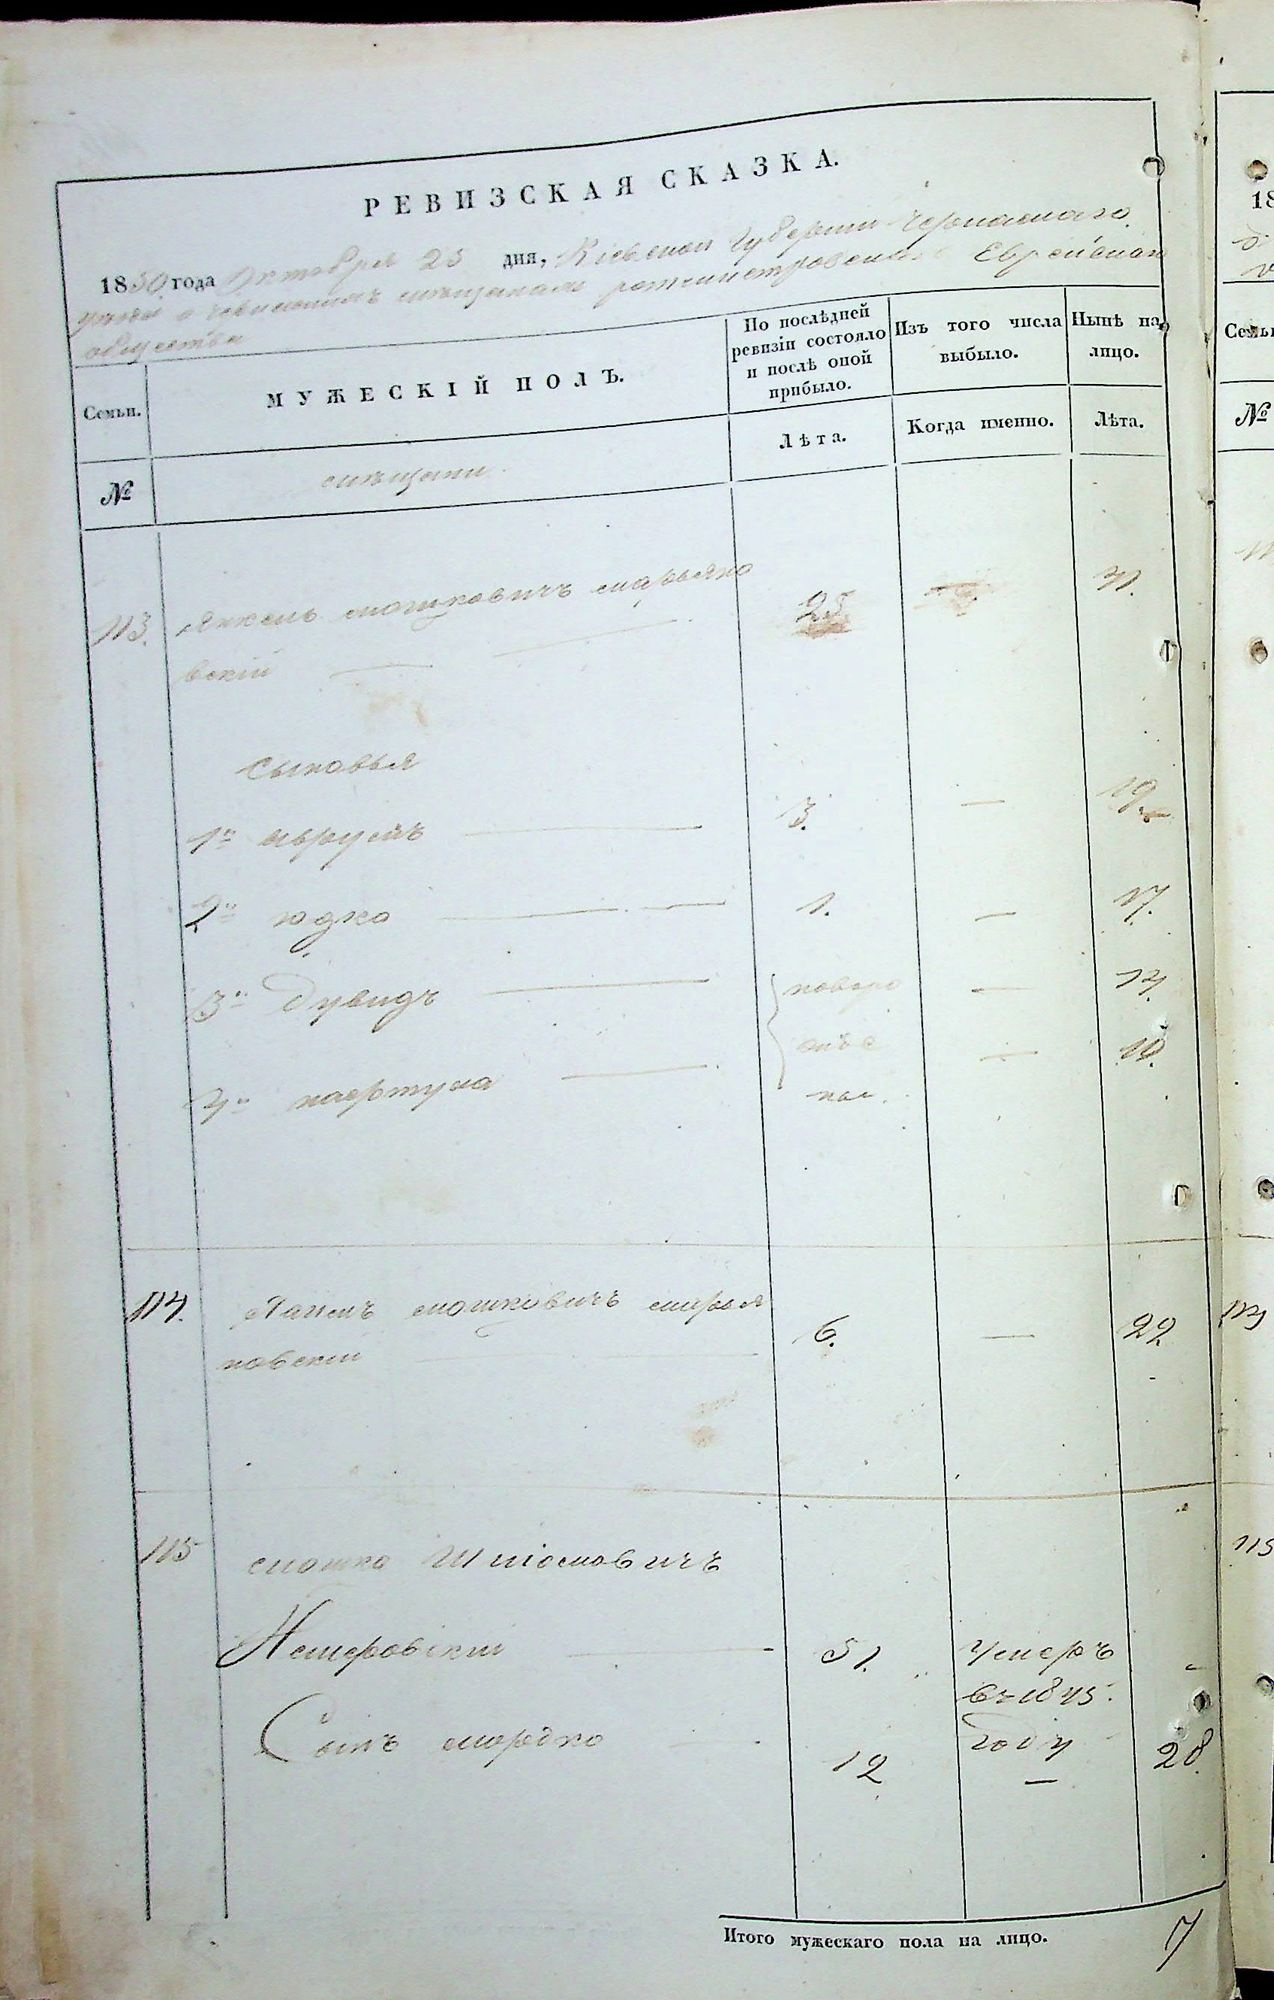 РЕВИЗСКАЯ СКАЗКА.
1850 года Октября 25 дня, Кіевской Губерніи Черкаскаго
уезда о мещанахъ Ротмистровскаго Еврейскаго
общества
Семьи.
МУЖЕСКІЙ ПОЛЪ.
По послѣдней ревизіи состояло и послѣ оной прибыло.
Изъ того числа выбыло.
Нынѣ на лицо.
№
мещани
Лѣта.
Когда именно.
Лѣта.
113. Янкель Мошковичъ Марьяно 25. 41.
вскій
Сыновья
1й Аврумъ 3. — 19.
2й Юдко 1. — 17.
3й Дувидъ новоро — 14.
жде
4й нос. — 10.
114. Мошковичъ Марья 6. — 22
новскій
115 Мошко Шліомовичъ
Немеровскій 51. Умеръ —
въ 1845.
Сынъ Мордко 12 году — 28.
Итого мужескаго пола на лицо. 7
18
Семьи
№
114
115